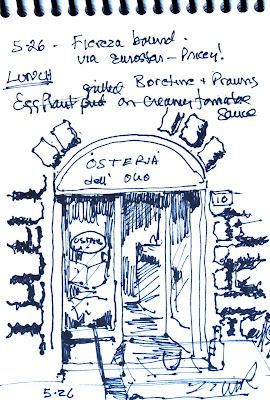 5-26 - Fiereza bound.
via Eurostar - Pricey!
LUNCH
grilled Boretine + Prawns
EggPlant on Creamy tomatoe
Sauce
OSTERIA
dell' OLIO
10
5.26